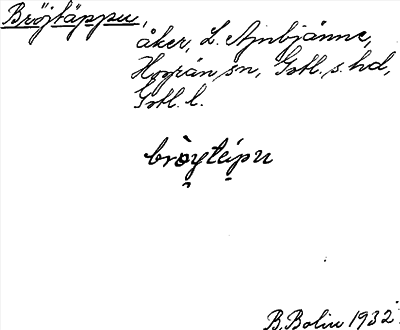 Bröjtäppu,
åker, L. Ajnbjänne,
Hogrän sn, Gotl. s. hd,
Gotl. l.
bròytépu
B. Bolin 1932